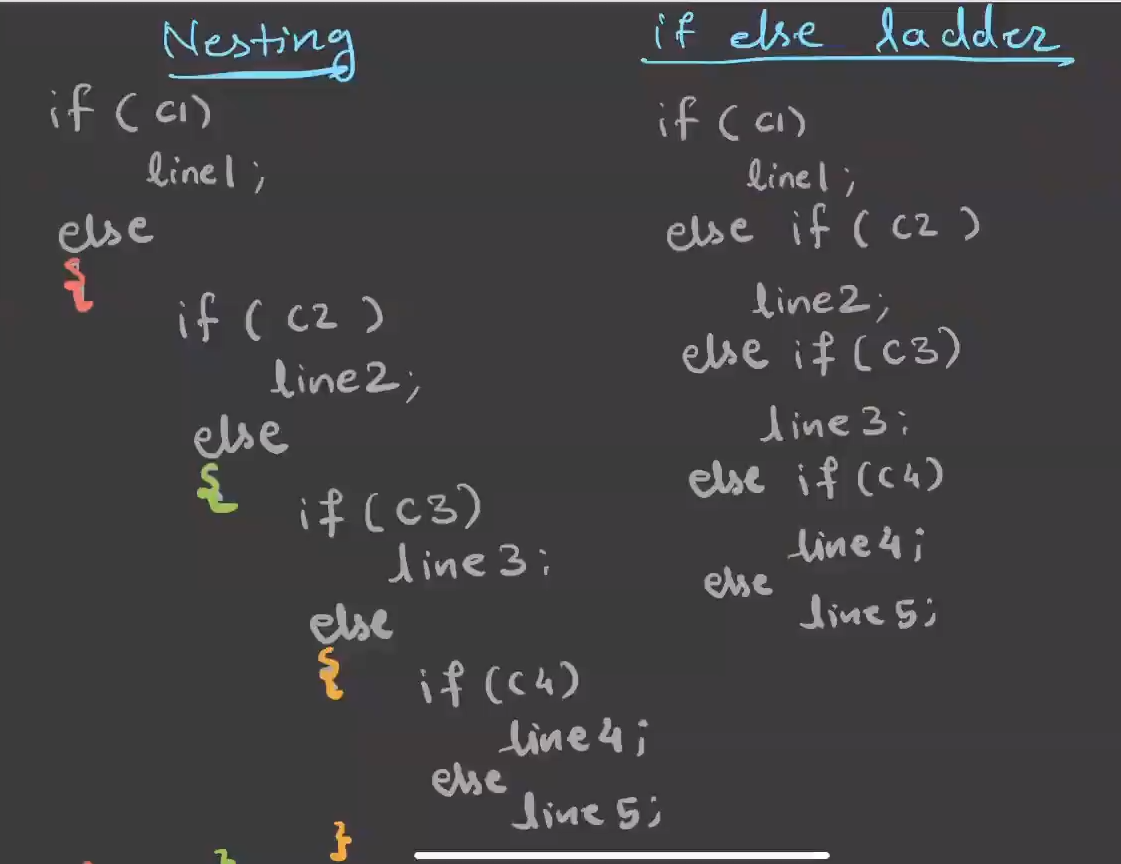 Nesting
if (C1)
line1;
else
{
if ( C2 )
line2;
else
{
if (C3)
line3;
else
{
if (C4)
line4;
else
line5;
}
}
if else ladder
if (C1)
line1;
else if ( C2 )
line2;
else if (C3)
line3;
else if (C4)
line4;
else
line5;